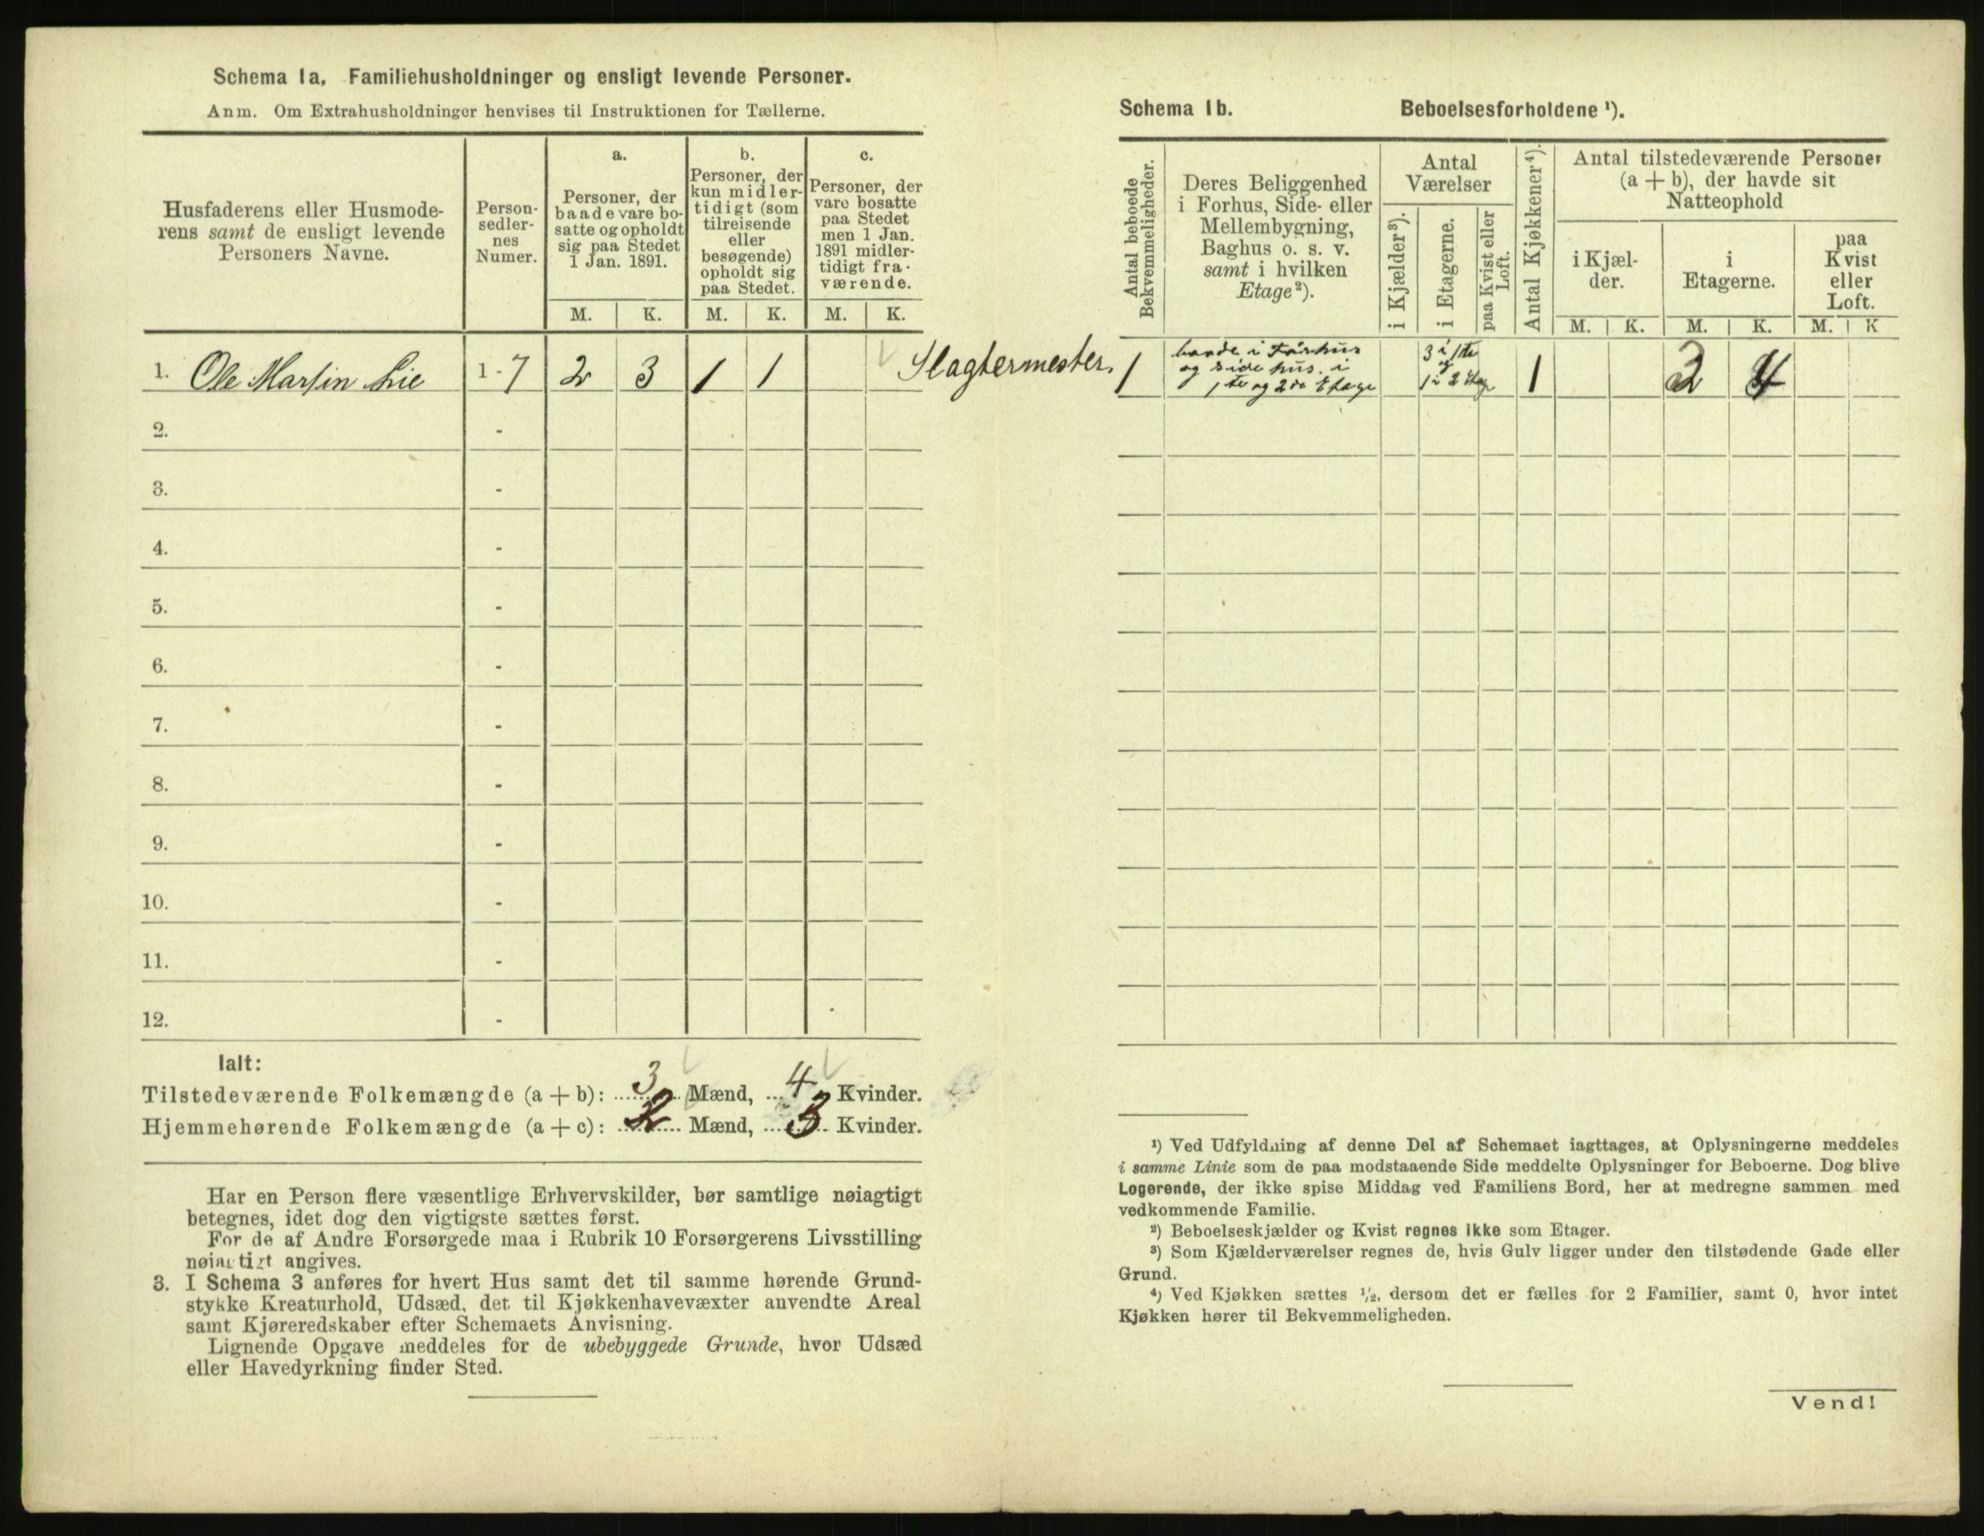 Schema 1a. Familiehusholdninger og ensligt levende Personer.
Anm. Om Extrahusholdninger henvises til Instruktionen for Tællerne.
Husfaderens eller Husmode-
rens samt de ensligt levende
Personers Navne.
Person-
sedler-
nes
Numer.
a.
Personer, der
baade vare bo-
satte og opholdt
sig paa Stedet
1 Jan. 1891.
M. K.
b.
Personer, der
kun midler-
tidigt (som
tilreisende
eller
besøgende)
opholdt sig
paa Stedet.
M. K.
c.
Personer, der
vare bosatte
paa Stedet
men 1 Jan.
1891 midler-
tidigt fra-
værende.
M. K.
1. Ole Martin Lie 1 - 7 2 3 1 1 Slagtermester
2. -
3. -
4. -
5. -
6. -
7. -
8. -
9. -
10. -
11. -
12. -
Ialt:
Tilstedeværende Folkemængde (a + b): 3 Mænd, 4 Kvinder.
Hjemmehørende Folkemængde (a + c): 2 Mænd, 3 Kvinder.
Har en Person flere væsentlige Erhvervskilder, bør samtlige nøiagtigt
betegnes, idet dog den vigtigste sættes først.
For de af Andre Forsørgede maa i Rubrik 10 Forsørgerens Livsstilling
nøiagtigt angives.
3. I Schema 3 anføres for hvert Hus samt det til samme hørende Grund-
stykke Kreaturhold, Udsæd, det til Kjøkkenhavevæxter anvendte Areal
samt Kjøreredskaber efter Schemaets Anvisning.
Lignende Opgave meddeles for de ubebyggede Grunde, hvor Udsæd
eller Havedyrkning finder Sted.
Schema 1b. Beboelsesforholdene ¹).
Antal beboede
Bekvemmeligheder.
Deres Beliggenhed
i Forhus, Side- eller
Mellembygning,
Baghus o. s. v.
samt i hvilken
Etage²).
Antal
Værelser
i Kjælder³).
i Etagerne.
paa Kvist eller
Loft.
Antal Kjøkkener⁴).
Antal tilstedeværende Personer
(a + b), der havde sit
Natteophold
i Kjæl-
der.
M. K.
i
Etagerne.
M. K.
paa
Kvist
eller
Loft.
M. K
1 baade i Forhus 3 i 1te 1 3 4
og Side hus. i og
1te og 2de Etage 1 i 2 Etage
¹) Ved Udfyldning af denne Del af Schemaet iagttages, at Oplysningerne meddeles
i samme Linie som de paa modstaaende Side meddelte Oplysninger for Beboerne. Dog blive
Logerende, der ikke spise Middag ved Familiens Bord, her at medregne sammen med
vedkommende Familie.
²) Beboelseskjælder og Kvist regnes ikke som Etager.
³) Som Kjælderværelser regnes de, hvis Gulv ligger under den tilstødende Gade eller
Grund.
⁴) Ved Kjøkken sættes ½, dersom det er fælles for 2 Familier, samt 0, hvor intet
Kjøkken hører til Bekvemmeligheden.
Vend!